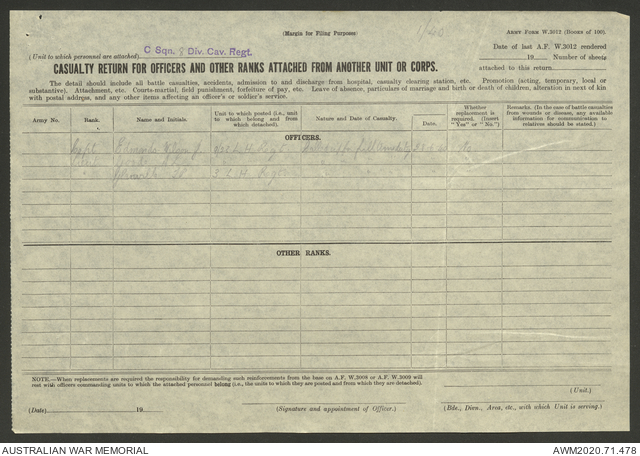 (Margin for Filing Purposes)
1/40
ARMY FORM W.3012 (BOOKS OF 100).
C Sqn. 8 Div. Cav. Regt.
(Unit to which personnel are attached)
Date of last A.F. W.3012 rendered
19 Number of sheets
attached to this return
CASUALTY RETURN FOR OFFICERS AND OTHER RANKS ATTACHED FROM ANOTHER UNIT OR CORPS.
The detail should include all battle casualties, accidents, admission to and discharge from hospital, casualty clearing station, etc. Promotion (acting, temporary, local or
substantive). Attachment, etc. Courts-martial, field punishment, forfeiture of pay, etc. Leave of absence, particulars of marriage and birth or death of children, alteration in next of kin
with postal address, and any other items affecting an officer's or soldier's service.
Army No.
Rank.
Name and Initials.
Unit to which posted (i.e., unit to which belong and from which detached).
Nature and Date of Casualty.
Date.
Whether replacement is required. (Insert "Yes" or "No.")
Remarks. (In the case of battle casualties from wounds or disease, any available information for communication to relatives should be stated.)
OFFICERS.
Capt Edwards No
3 L H Regt
OTHER RANKS.
NOTE.—When replacements are required the responsibility for demanding such reinforcements from the base on A.F. W.3008 or A.F. W.3009 will
rest with officers commanding units to which the attached personnel belong (i.e., the units to which they are posted and from which they are detached).
(Unit.)
(Date) 19
(Signature and appointment of Officer.)
(Bde., Divn., Area, etc., with which Unit is serving.)
AUSTRALIAN WAR MEMORIAL
AWM2020.71.478